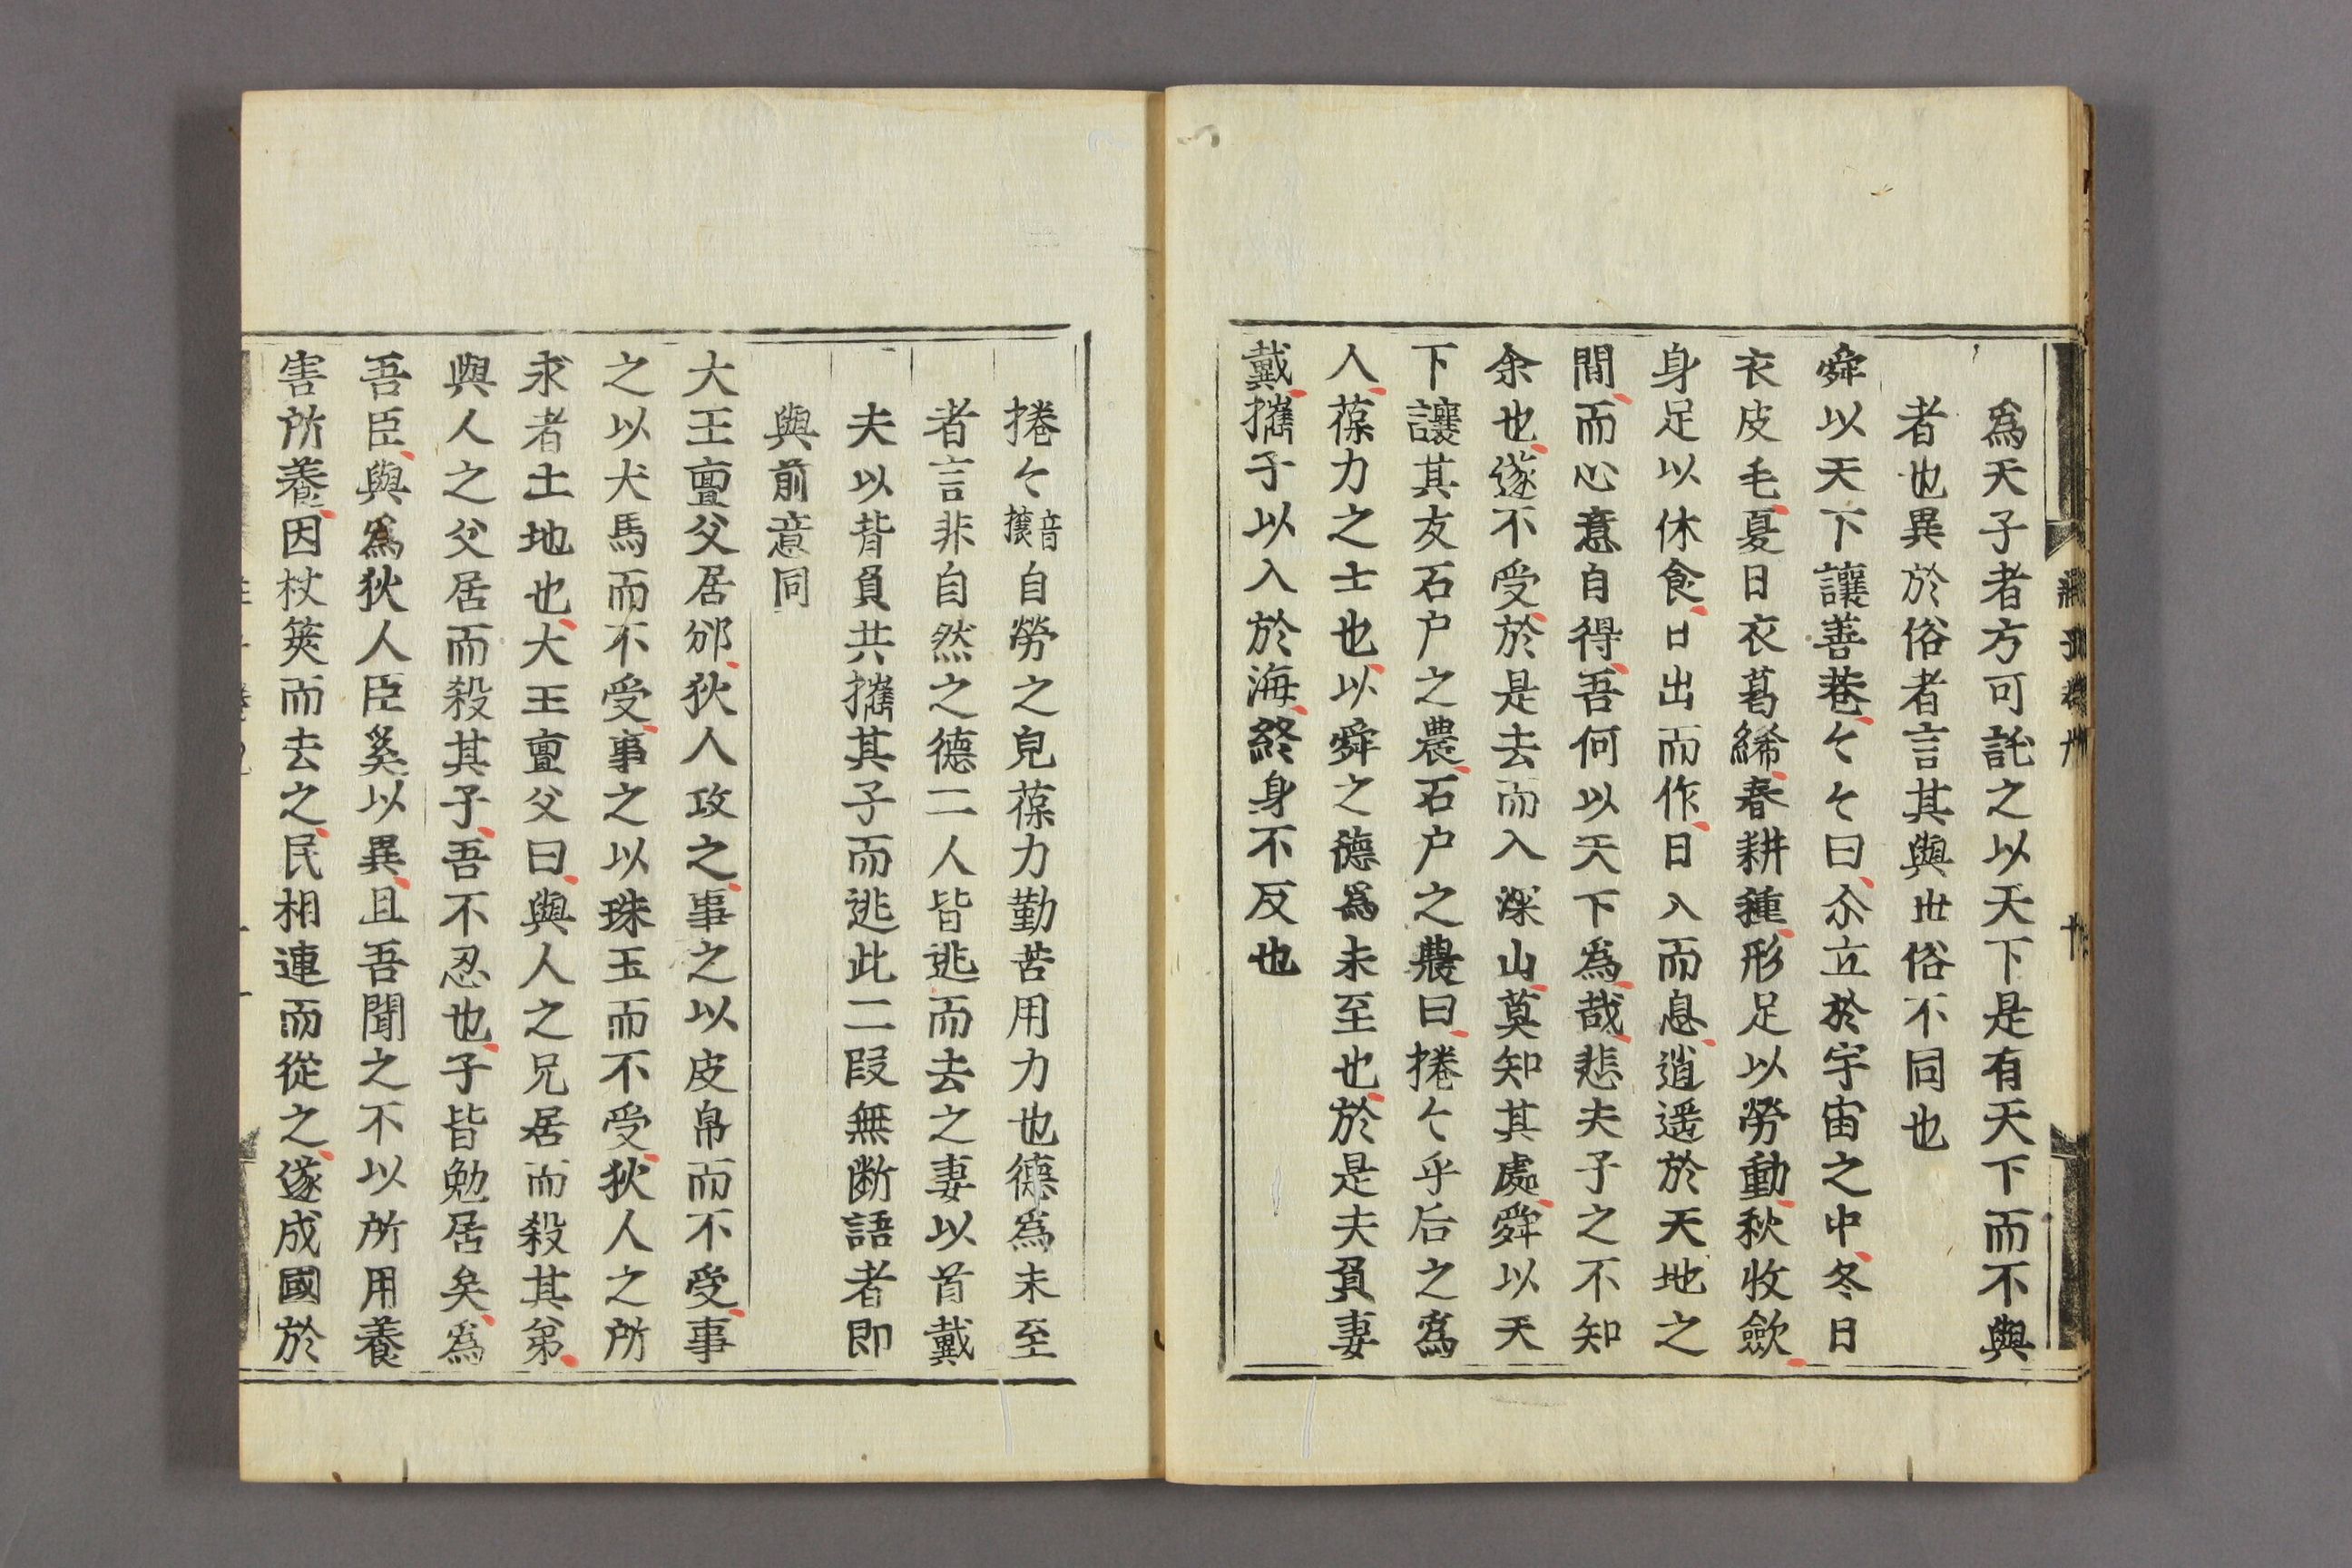 爲天子者方可託之以天下是有天下而不與
者也異於俗者言其與丗俗不同也
舜以天下讓善巷〻〻曰尒立於宇宙之中冬日
衣皮毛夏日衣葛絺春耕種形足以勞動秋收歛
身足以休食日出而作日入而息逍遥於天地之
間而心意自得吾何以天下爲㢤悲夫子之不知
余也遂不受於是去而入深山莫知其處舜以天
下讓其友石户之農石户之農曰捲〻乎后之爲
人葆力之士也以舜之德爲未至也於是夫負妻
戴攜子以入於海終身不反也
捲〻音攓自勞之皃葆力勤苦用力也德爲未至
者言非自然之德二人皆逃而去之妻以首戴
夫以背負共攜其子而逃此二段無断語者即
與前意同
大王亶父居邠狄人攻之事之以皮帛而不受事
之以犬馬而不受事之以珠玉而不受狄人之所
求者土地也大王亶父曰與人之兄居而殺其弟
與人之父居而殺其子吾不忍也子皆勉居矣爲
吾臣與爲狄人臣奚以異且吾聞之不以所用養
害所養因杖筴而去之民相連而從之遂成國於